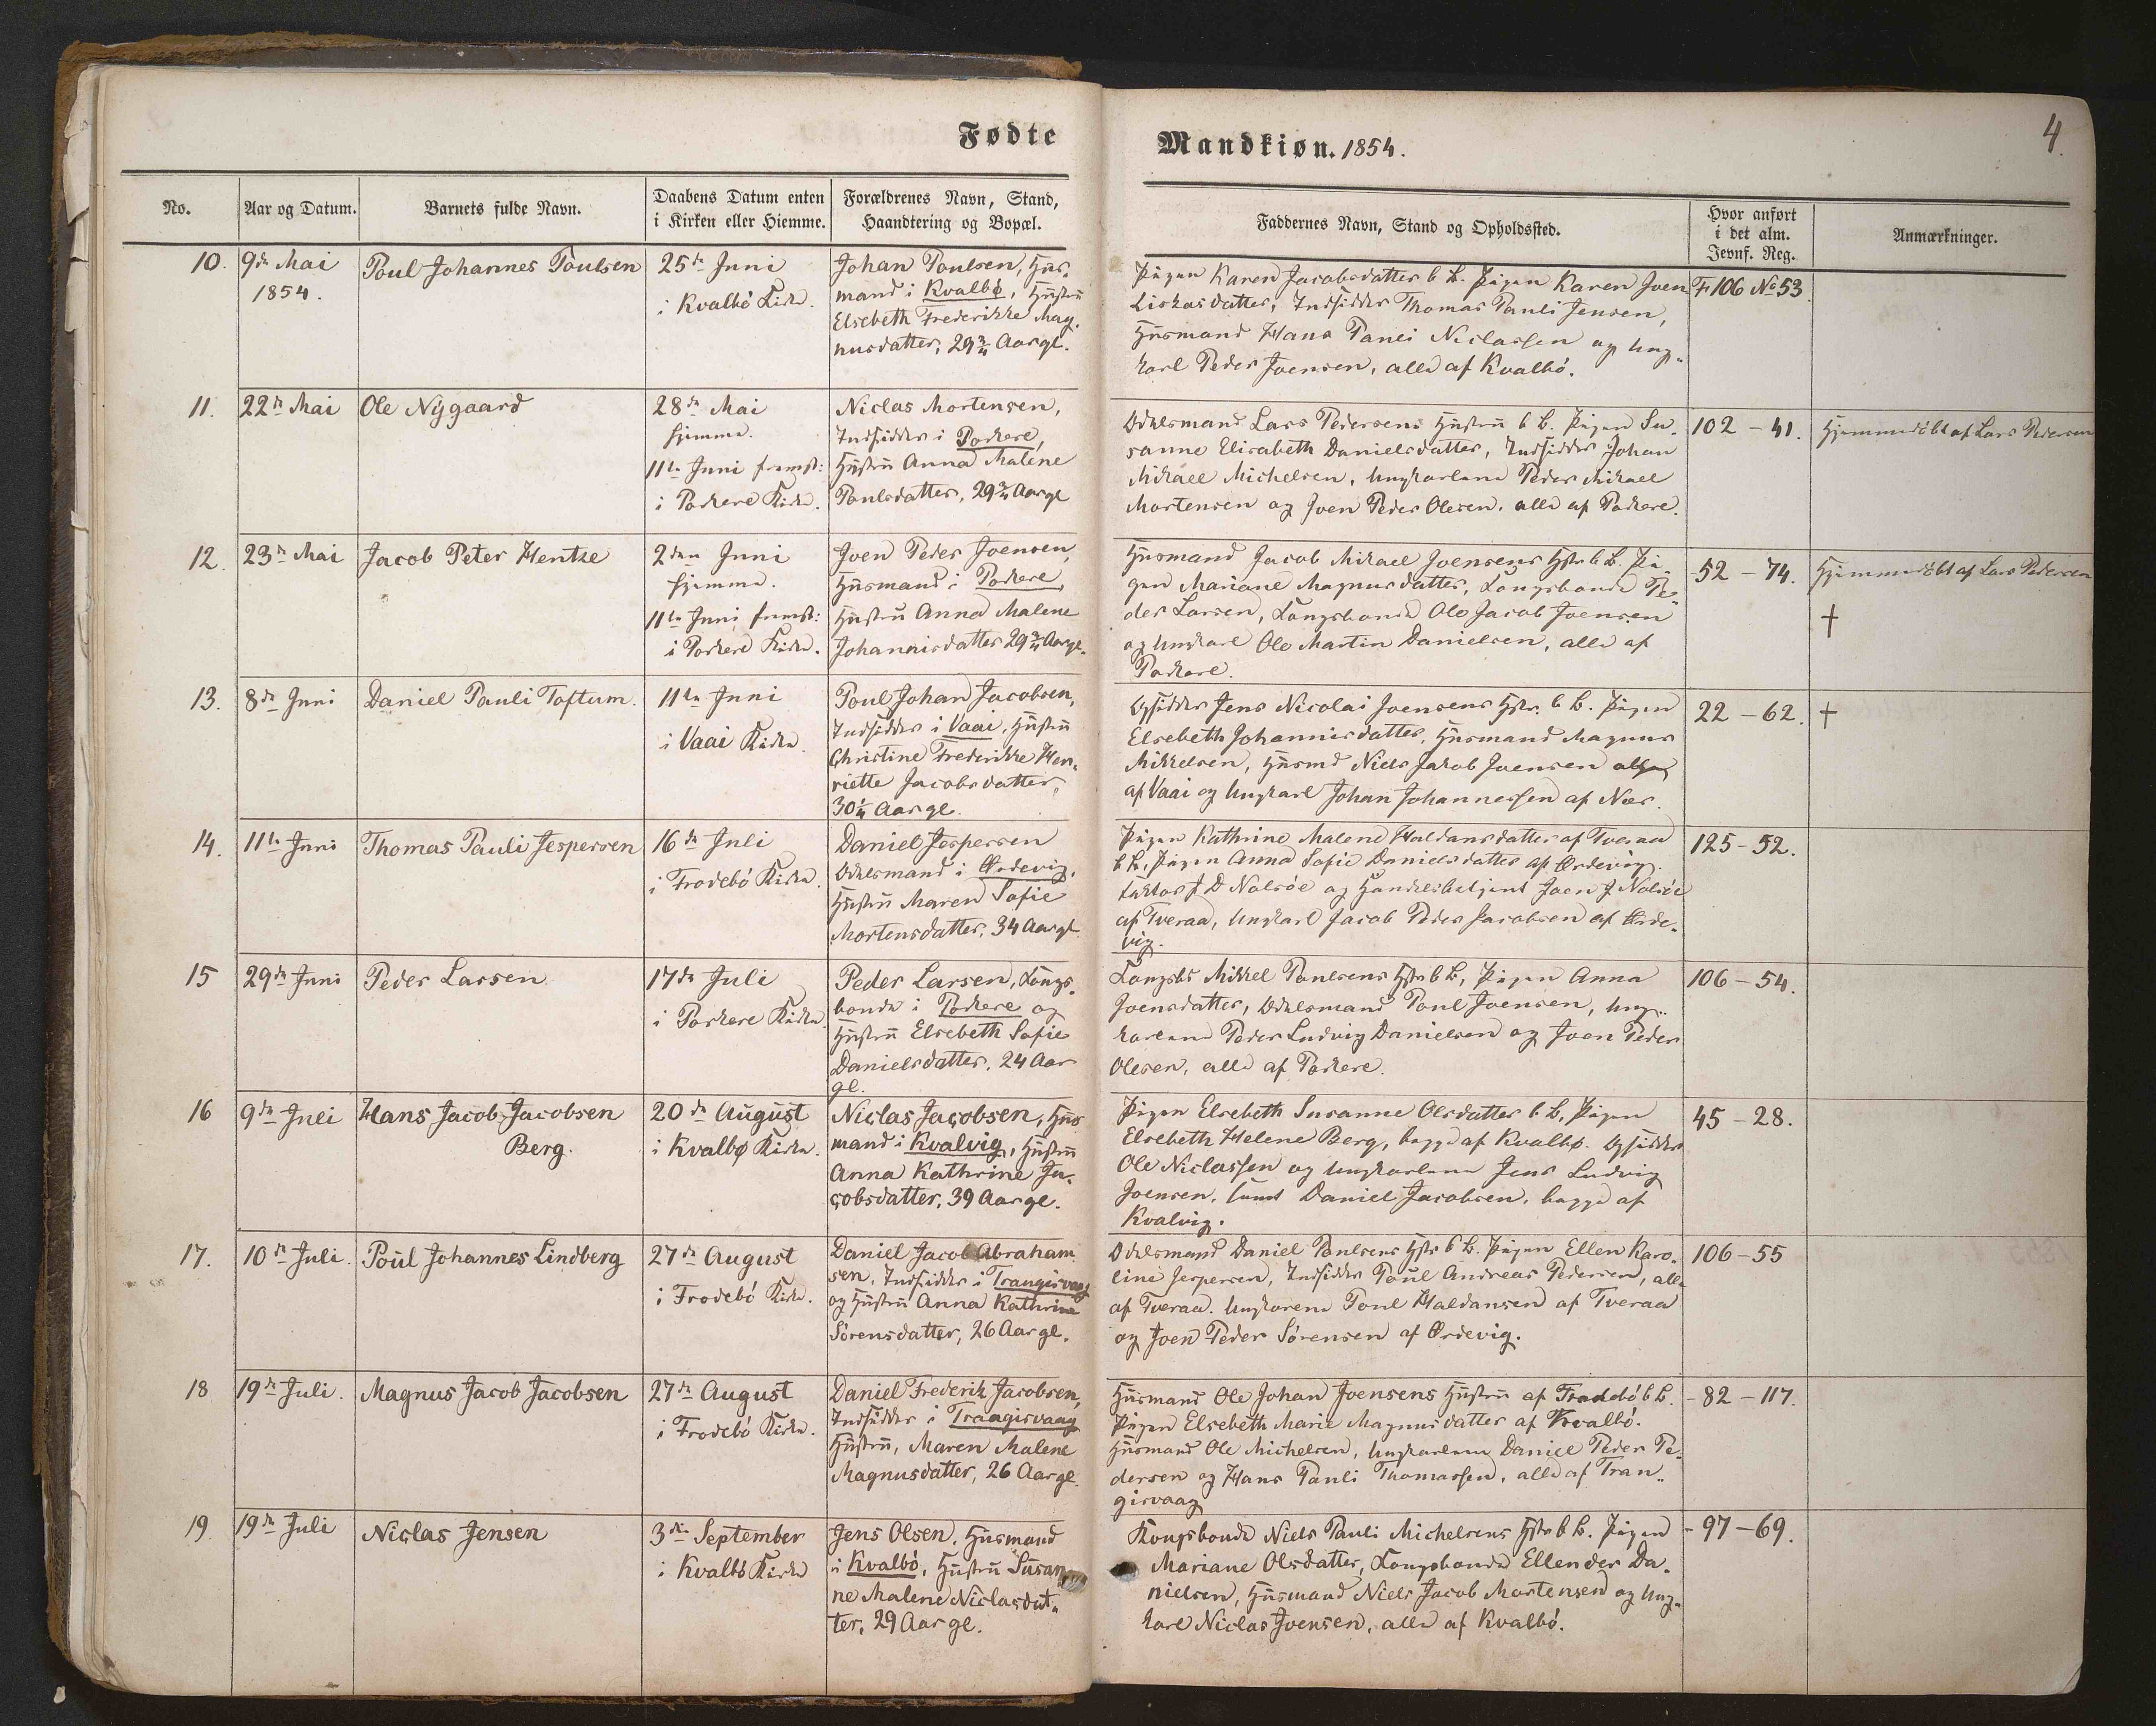 Fødte
Mandkiøn. 1854.
4.
No.
Aar og Datum.
Barnets fulde Navn.
Daabens Datum enten
i Kirken eller Hiemme.
Forældrenes Navn, Stand,
Haandtering og Bopæl.
Faddernes Navn, Stand og Opholdssted.
Hvor anført
i det alm.
Jevnf. Reg.
Anmærkninger.
10.
9de Mai
1854.
Poul Johannes Poulsen
25de Juni
i Kvalbö Kirke.
Johan Poulsen, Hus-
mand i Kvalbø, Hustru
Elsebeth Frederikke Mag-
nusdatter, 29 3/4 Aar gl.
Pigen Karen Jacobsdatter b. B. Pigen Karen Joen
Liskasdatter, Indsidder Thomas Pauli Jensen,
Husmand Hans Pauli Niclassen og Ung-
karl Peder Joensen, alle af Kvalbö.
F 106 No 53.
11.
22de Mai
Ole Nÿgaard
28de Mai
hjemme.
11te Juni fremst:
i Porkere Kirke.
Niclas Mortensen,
Indsidder i Porkere,
Hustru Anna Malene
Poulsdatter, 29 3/4 Aar gl
Odelsmand Lars Pedersens Hustru b. B. Pigen Su-
sanne Elisabeth Danielsdatter, Indsidder Johan
Mikael Michelsen, Ungkarlene Peder Mikael
Mortensen og Joen Peder Olesen, alle af Porkere.
102 - 41.
Hjemmedöbt af Lars Pedersen
12.
23de Mai
Jacob Peter Hentze
2den Juni
hjemme.
11te Juni fremst:
i Porkere Kirke.
Joen Peder Joensen,
Husmand i Porkere,
Hustru Anna Malene
Johannisdatter 29 3/4 Aar gl.
Husmand Jacob Mikael Joensens Hstr b. B. Pi-
gen Mariane Magnusdatter, Kongsbonde Pe-
der Larsen, Kongsbonde Ole Jacob Joensen
og Ungkarl Ole Martin Danielsen, alle af
Porkere.
52 - 74.
Hjemmedöbt af Lars Pedersen
†
13.
8de Juni
Daniel Pauli Toftum.
11te Juni
i Vaai Kirke.
Poul Johan Jacobsen,
Indsidder i Vaai, Hustru
Christine Frederikke Hen-
riette Jacobsdatter,
30 1/4 Aar gl.
Opsidder Jens Nicolai Joensens Hstr. b. B. Pigen
Elsebeth Johannisdatter, Husmand Magnus
Mikkelsen, Husmd Niels Jakob Joensen alle
af Vaai og Ungkarl Johan Johannessen af Næs.
22 - 62.
†
14.
11te Juni
Thomas Pauli Jespersen
16de Juli
i Frodebö Kirke.
Daniel Jespersen
Odelsmand i Ördevig,
Hustru Maren Sofie
Mortensdatter, 34 Aar gl
Pigen Kathrine Malene Haldansdatter af Tveraa
b. B. Pigen Anna Sofie Danielsdatter af Ördevig.
Faktor J. D Nolsöe og Handelsbetjent Joen J Nolsöe
af Tveraa, Ungkarl Jacob Peder Jacobsen af Örde-
vig.
125 - 52.
15
29de Juni
Peder Larsen
17de Juli
i Porkere Kirke.
Peder Larsen, Kongs-
bonde i Porkere og
Hustru Elsebeth Sofie
Danielsdatter, 24 Aar
gl.
Kongsb: Mikkel Poulsens Hstr b B, Pigen Anna
Joensdatter, Odelsmand Poul Joensen, Ung-
karlene Peder Ludvig Danielsen og Joen Peder
Olesen, alle af Porkere.
106 - 54.
16
9de Juli
Hans Jacob Jacobsen
Berg.
20de August
i Kvalbø Kirke.
Niclas Jacobsen, Hus
mand i Kvalvig, Hustru
Anna Kathrine Ja-
cobsdatter, 39 Aar gl.
Pigen Elsebeth Susanne Olsdatter b. B, Pigen
Elsebeth Helene Berg, begge af Kvalbø. Opsidder
Ole Niclassen og Ungkarlene Jens Ludvig
Joensen, samt Daniel Jacobsen, begge af
Kvalvig.
45 - 28.
17.
10de Juli.
Poul Johannes Lindberg
27de August
i Frodebö Kirke.
Daniel Jacob Abraham
sen, Indsidder i Trangisvaag
og Hustru Anna Kathrine
Sörensdatter, 26 Aar gl.
Odelsmand Daniel Poulsens Hstr b B. Pigen Ellen Karo-
line Jespersen, Indsidder Poul Andreas Pedersen, alle
af Tveraa. Ungkarene Poul Haldansen af Tveraa
og Joen Peder Sörensen af Ördevig.
106 - 55
18
19de Juli.
Magnus Jacob Jacobsen
27de August
i Frodebö Kirke.
Daniel Frederik Jacobsen,
Indsidder i Trangisvaag
Hustru, Maren Malene
Magnusdatter, 26 Aar gl.
Husmand Ole Johan Joensens Hustru af Frodebö b B.
Pigen Elsebeth Marie Magnusdatter af Kvalbö.
Husmand Ole Michelsen, Ungkarlene Daniel Peder Pe-
dersen og Hans Pauli Thomassen, alle af Tran-
gisvaag
- 82 - 117.
19.
19de Juli
Niclas Jensen
3die September
i Kvalbö Kirke
Jens Olsen, Husmand
i Kvalbö, Hustru Susan
ne Malene Niclasdat-
ter, 29 Aar gl.
Kongsbonde Niels Pauli Michelsens Hstr b B. Pigen
Mariane Olsdatter, Kongsbonde Ellendes Da-
nielsen, Husmand Niels Jacob Mortensen og Ung-
karl Niclas Joensen, alle af Kvalbö.
- 97 - 69.